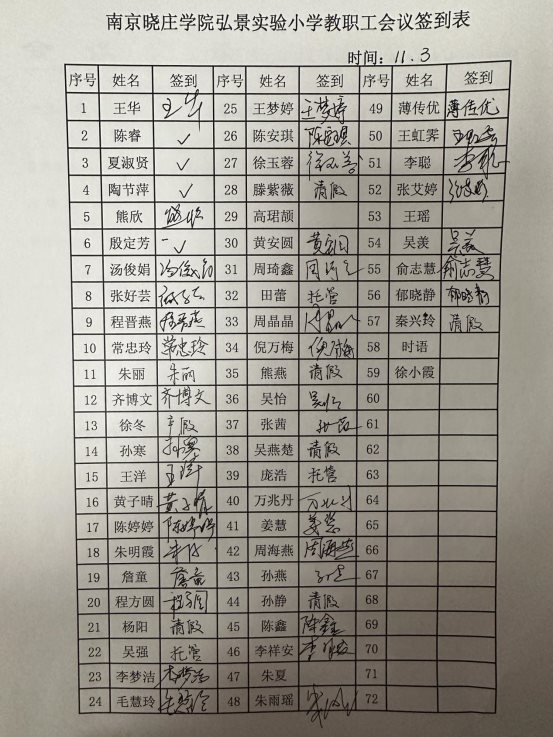 南京晓庄学院弘景实验小学教职工会议签到表
时间：11.3
序号 姓名 签到 序号 姓名 签到 序号 姓名 签到
1 王华 王华 25 王梦婷 王梦婷 49 薄传优 薄传优
2 陈睿 ✓ 26 陈安琪 陈安琪 50 王虹霁
3 夏淑贤 ✓ 27 徐玉蓉 51 李聪 李聪
4 陶节萍 ✓ 28 滕紫薇 请假 52 张艾婷
5 熊欣 29 高珺颉 53 王瑶
6 殷定芳 ✓ 30 黄安圆 54 吴羡 吴羡
7 汤俊娟 31 周琦鑫 55 俞志慧 俞志慧
8 张好芸 32 田蕾 托管 56 郁晓静 郁晓静
9 程晋燕 33 周晶晶 57 秦兴龄 请假
10 常忠玲 常忠玲 34 倪万梅 倪万梅 58 时语
11 朱丽 朱丽 35 熊燕 请假 59 徐小霞
12 齐博文 齐博文 36 吴怡 60
13 徐冬 37 张茜 61
14 孙寒 38 吴燕楚 请假 62
15 王洋 39 庞浩 托管 63
16 黄子晴 40 万兆丹 64
17 陈婷婷 陈婷婷 41 姜慧 姜慧 65
18 朱明霞 42 周海燕 周海燕 66
19 詹童 詹童 43 孙燕 67
20 程方圆 44 孙静 请假 68
21 杨阳 请假 45 陈鑫 陈鑫 69
22 吴强 托管 46 李祥安 70
23 李梦洁 李梦洁 47 朱夏 71
24 毛慧玲 48 朱雨瑶 72